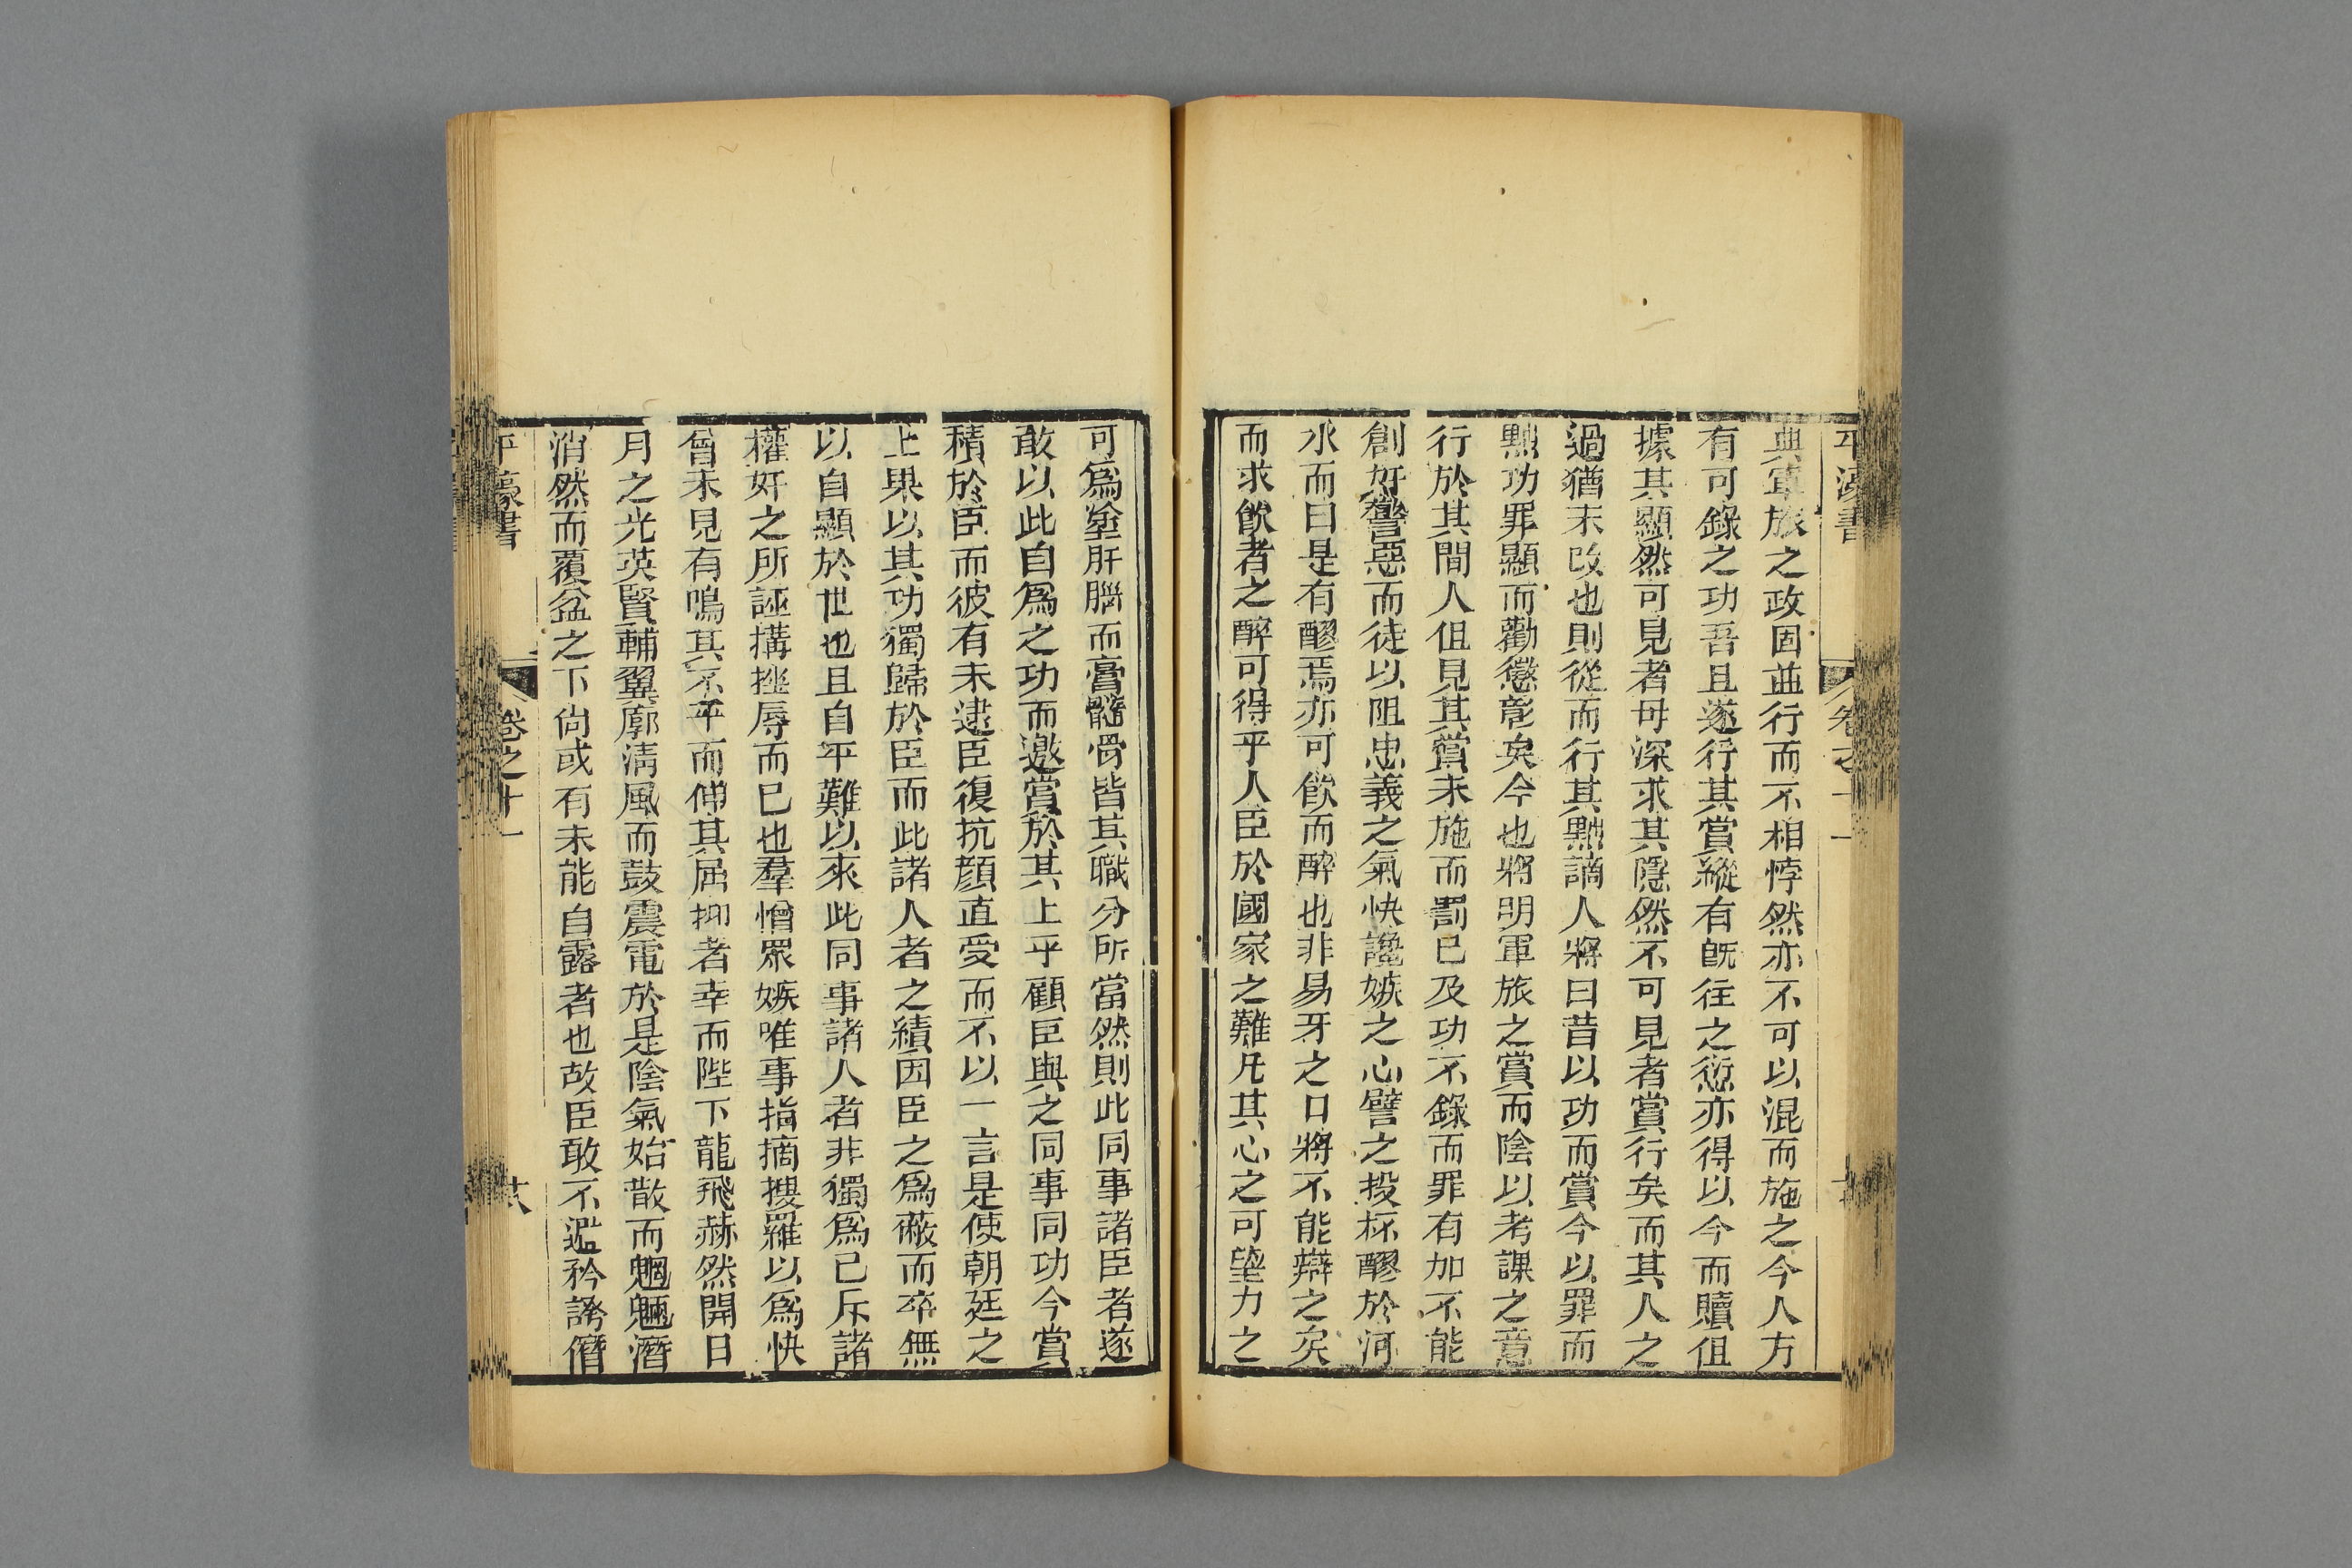 典軍旅之政固並行而不相悖然亦不可以混而施之今人方
有可錄之功吾且遂行其賞縱有旣往之愆亦得以今而贖但
據其顯然可見者毋深求其隱然不可見者賞行矣而其人之
過猶未改也則從而行其黜謫人將曰昔以功而賞今以罪而
黜功罪顯而勸懲彰矣今也將明軍旅之賞而陰以考課之意
行於其間人但見其賞未施而罰已及功不錄而罪有加不能
創奸警惡而徒以阻忠義之氣快讒嫉之心譬之投杯醪於河
水而曰是有醪焉亦可飲而醉也非易牙之口將不能辯之矣
而求飲者之醉可得乎人臣於國家之難凡其心之可望力之
可爲塗肝腦而膏髓骨皆其職分所當然則此同事諸臣者遂
敢以此自爲之功而邀賞於其上乎顧臣與之同事同功今賞
積於臣而彼有未逮臣復抗顔直受而不以一言是使朝廷之
上果以其功獨歸於臣而此諸人者之績因臣之爲蔽而卒無
以自顯於世也且自平難以來此同事諸人者非獨爲已斥諸
權奸之所誣搆挫辱而已也羣憎眾嫉唯事指摘搜羅以爲快
曾未見有鳴其不平而伸其屈抑者幸而陛下龍飛赫然開日
月之光英賢輔翼廓淸風而鼓震電於是陰氣始散而魍魎潛
消然而覆盆之下尙或有未能自露者也故臣敢不逃矜誇僭
平濠書
卷之十一